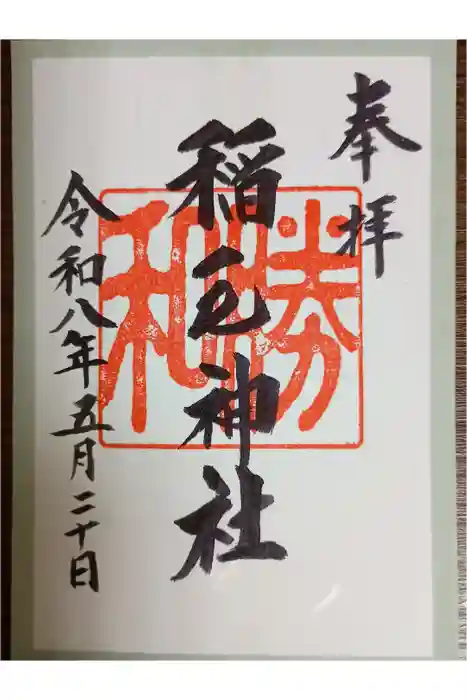 奉拝
稲毛神社
勝和
令和八年五月二十日